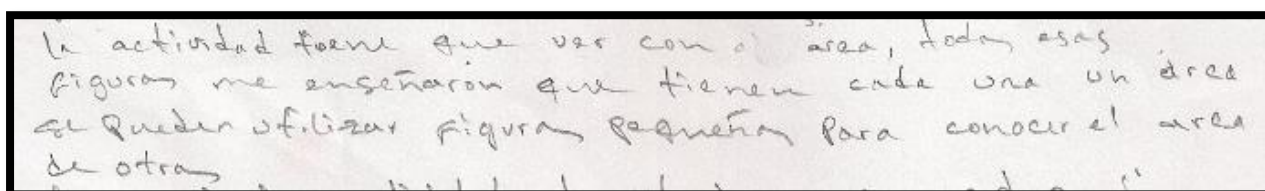 la actividad tiene que ver con el área, todas esas
figuras me enseñaron que tienen cada una un área
se pueden utilizar figuras pequeñas para conocer el area
de otras